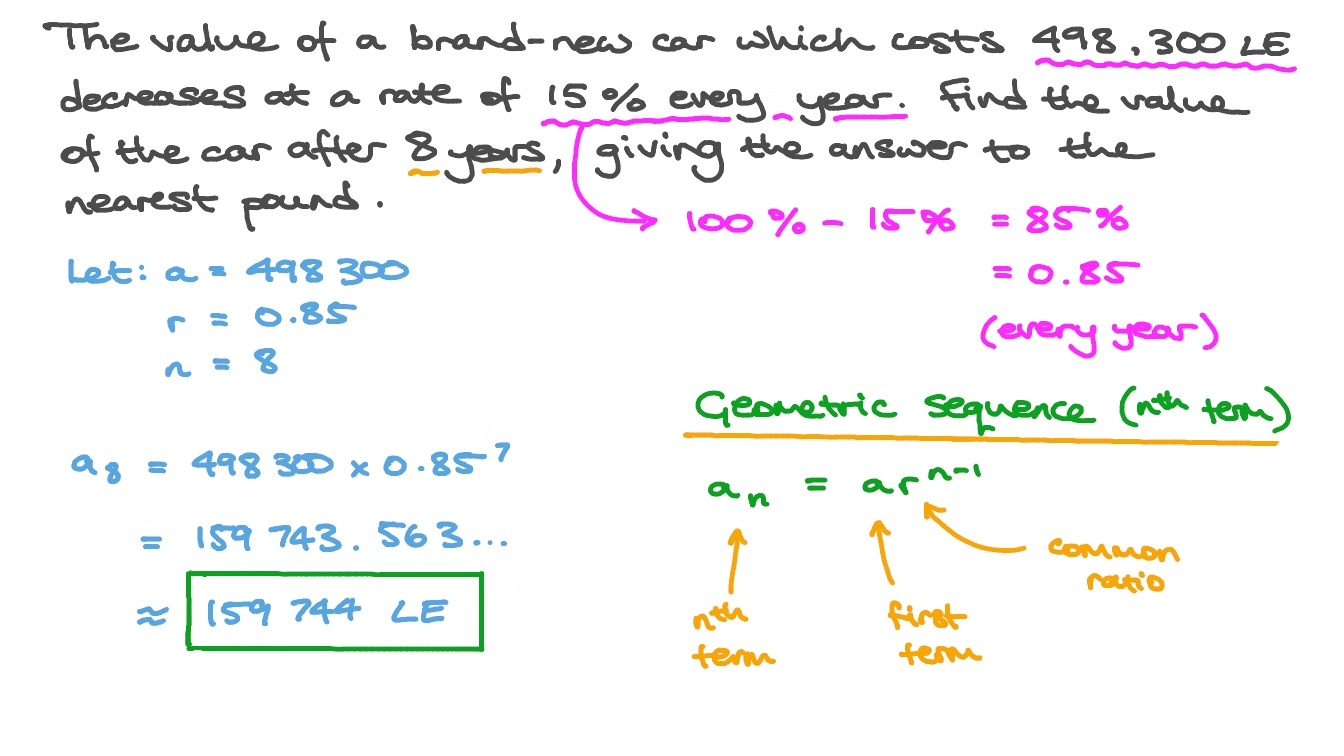 The value of a brand-new car which costs 498,300 LE
decreases at a rate of 15% every year. Find the value
of the car after 8 years, giving the answer to the
nearest pound.
100% - 15% = 85%
= 0.85
(every year)
Let: a = 498 300
r = 0.85
n = 8
a₈ = 498 300 × 0.85⁷
= 159 743.563...
≈ 159 744 LE
Geometric sequence (nᵗʰ term)
aₙ = arⁿ⁻¹
common
ratio
nᵗʰ
term
first
term